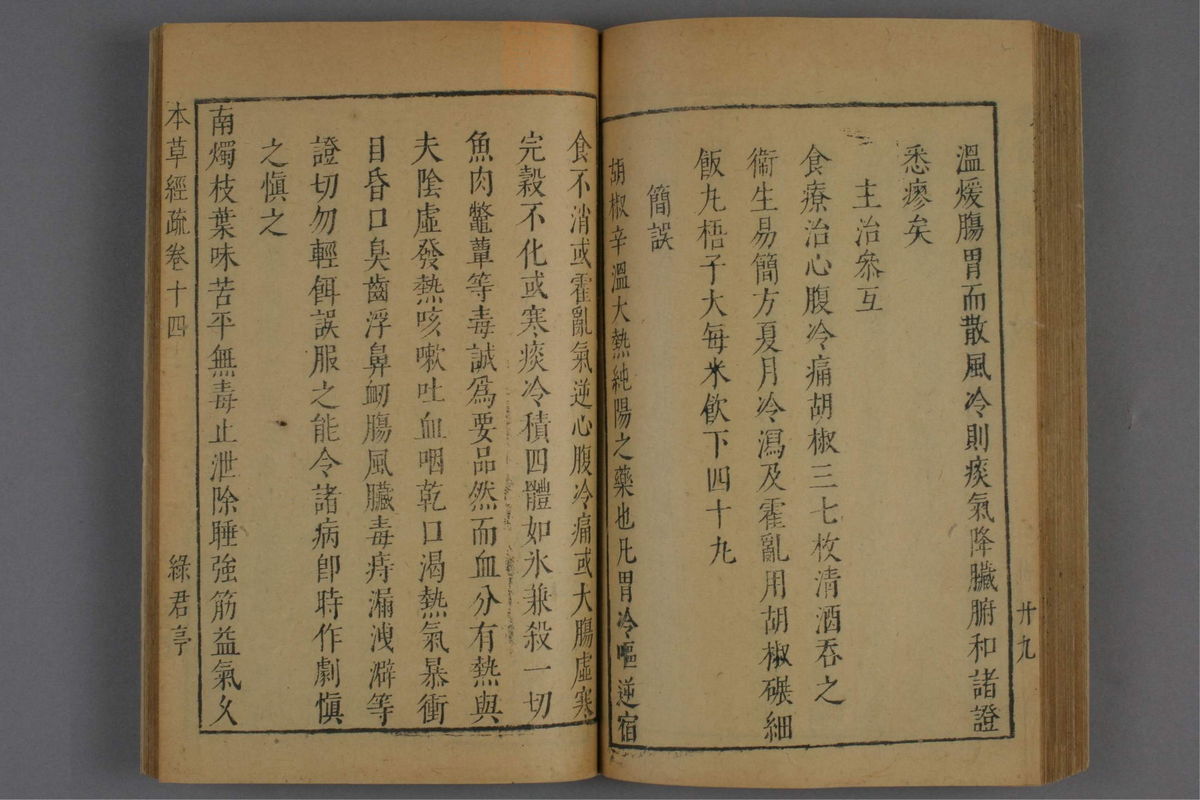 溫煖腸胃而散風冷則痰氣降臟腑和諸證
悉瘳矣
主治叅互
食療治心腹冷痛胡椒三七枚清酒吞之
衞生易簡方夏月冷瀉及霍亂用胡椒碾細
飯丸梧子大每米飲下四十丸
簡誤
胡椒辛溫大熱純陽之藥也凡胃冷嘔逆宿
卄九
食不消或霍亂氣逆心腹冷痛或大腸虛寒
完穀不化或寒痰冷積四體如氷兼殺一切
魚肉鱉蕈等毒誠爲要品然而血分有熱與
夫陰虛發熱咳嗽吐血咽乾口渴熱氣暴衝
目昏口臭齒浮鼻衂腸風臟毒痔漏洩澼等
證切勿輕餌誤服之能令諸病卽時作劇愼
之愼之
南燭枝葉味苦平無毒止泄除睡強筋益氣久
本草經疏卷十四
綠君亭